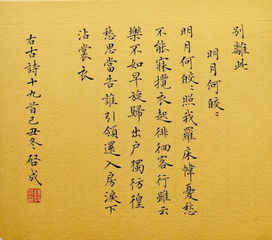 別離此
明月何皎〻
明月何皎〻照我羅床幃憂愁
不能寐攬衣起徘徊客行雖云
樂不如早旋歸出户獨彷徨
愁思當告誰引領還入房淚下
沾裳衣
右古詩十九首己丑冬啓成